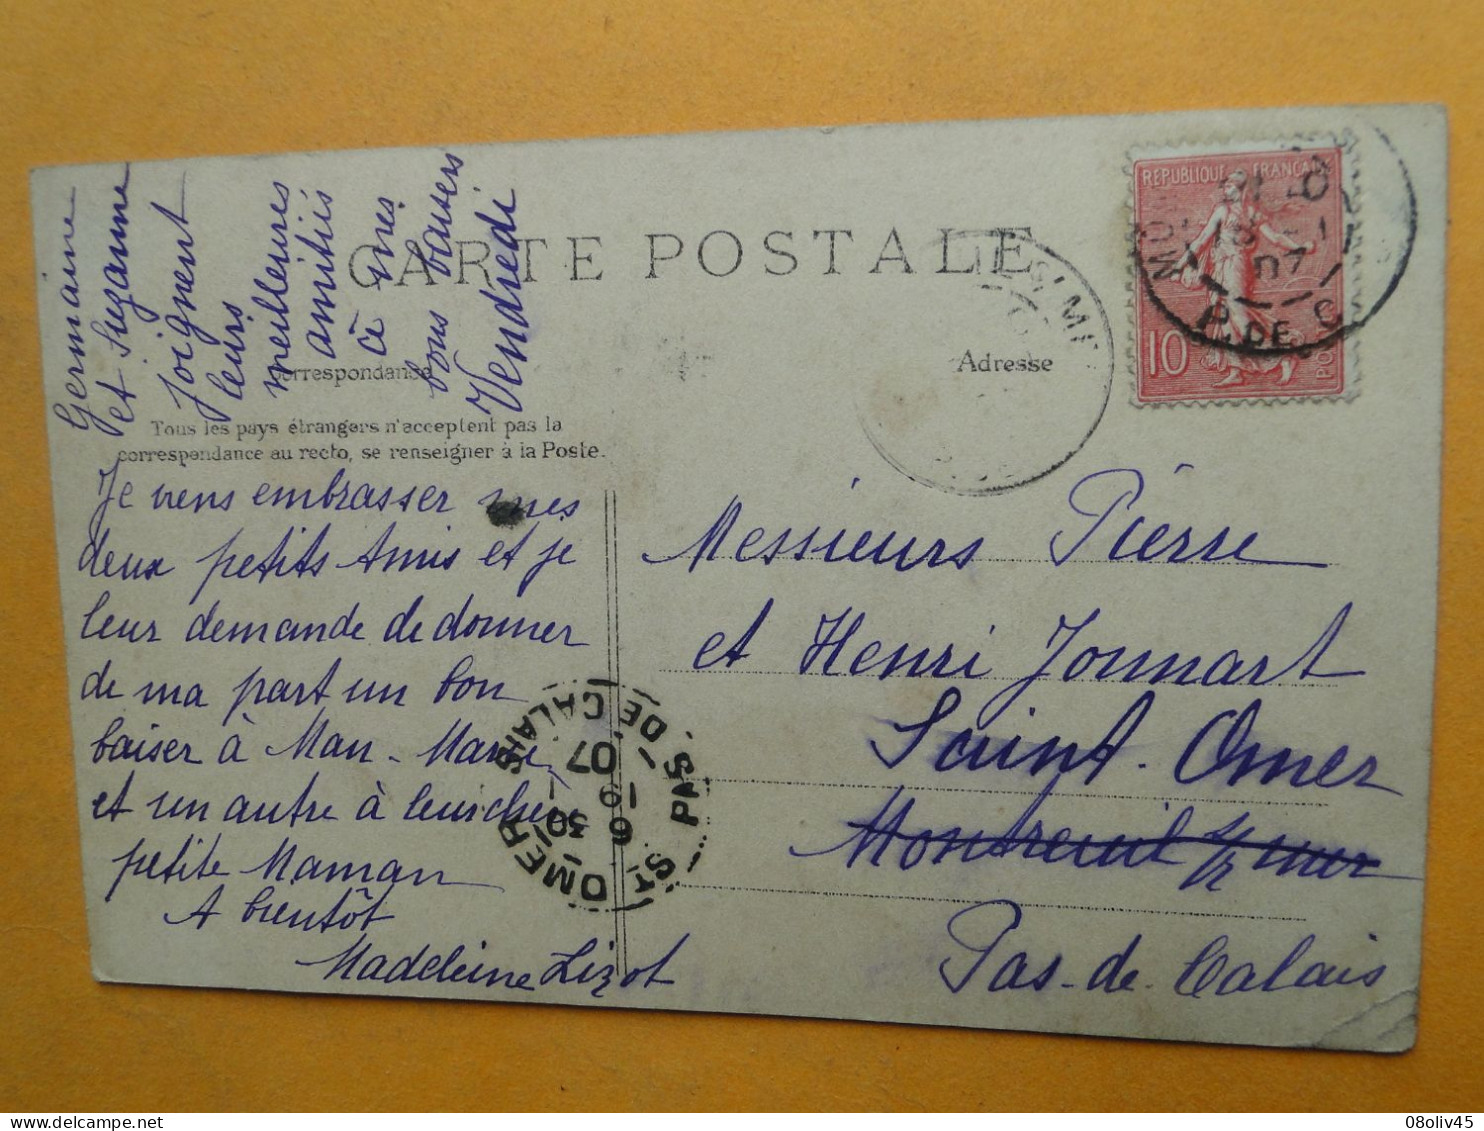 Germaine
et Suzanne
joignent
leurs
meilleures
amitiés
à mes
bons baisers
Vendredi
CARTE POSTALE
Correspondance
Adresse
Tous les pays étrangers n'acceptent pas la
correspondance au recto, se renseigner à la Poste.
REPUBLIQUE FRANÇAISE
10
07
P. DE C
Je viens embrasser mes
deux petits Amis et je
leur demande de donner
de ma part un bon
baiser à Man-Marie
et un autre à leur chère
petite Maman
A bientôt
Madeleine Lizot
Messieurs Pierre
et Henri Jonnart
Saint-Omer
Montreuil s/ mer
Pas-de-Calais
ST OMER
PAS DE CALAIS
6
07
08oliv45